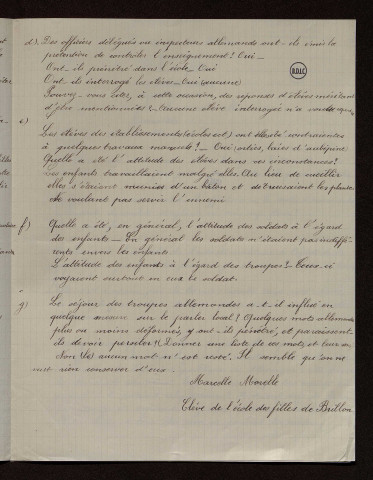 d) Des officiers délégués ou inspecteurs allemands ont-ils émis la
prétention de contrôler l'enseignement? Oui _
Ont-ils pénétré dans l'école _ Oui
B.D.I.C
Ont-ils interrogé les élèves _ Oui (aucune)
Pouvez-vous citer, à cette occasion, des réponses d'élèves méritant
d'être mentionnées? _ Aucune élève interrogée n'a voulu
e) Les élèves des établissements (écoles etc) ont elles été contraintes
à quelques travaux manuels? _ Oui: orties, baies d'aubépine
Quelle a été l'attitude des élèves dans ces circonstances?
Les enfants travaillaient malgré elles. Au lieu de cueillir
elles s'étaient munies d'un bâton et détruisaient les plantes
Ne voulant pas servir l'ennemi
f) Quelle a été, en général, l'attitude des soldats à l'égard
des enfants _ En général les soldats n'étaient pas indiffé-
rents envers les enfants
L'attitude des enfants à l'égard des troupes? _ Ceux-ci
voyaient surtout en eux le soldat.
g) Le séjour des troupes allemandes a-t-il influé en
quelque mesure sur le parler local? Quelques mots allemands
plus ou moins déformés, y ont-ils pénétré, et paraissent-
ils devoir persister? (Donner une liste de ces mots et leur sens
Non (es) aucun mot n'est resté. Il semble qu'on ne
veut rien conserver d'eux.
Marcelle Morelle
Elève de l'école des filles de Brillon